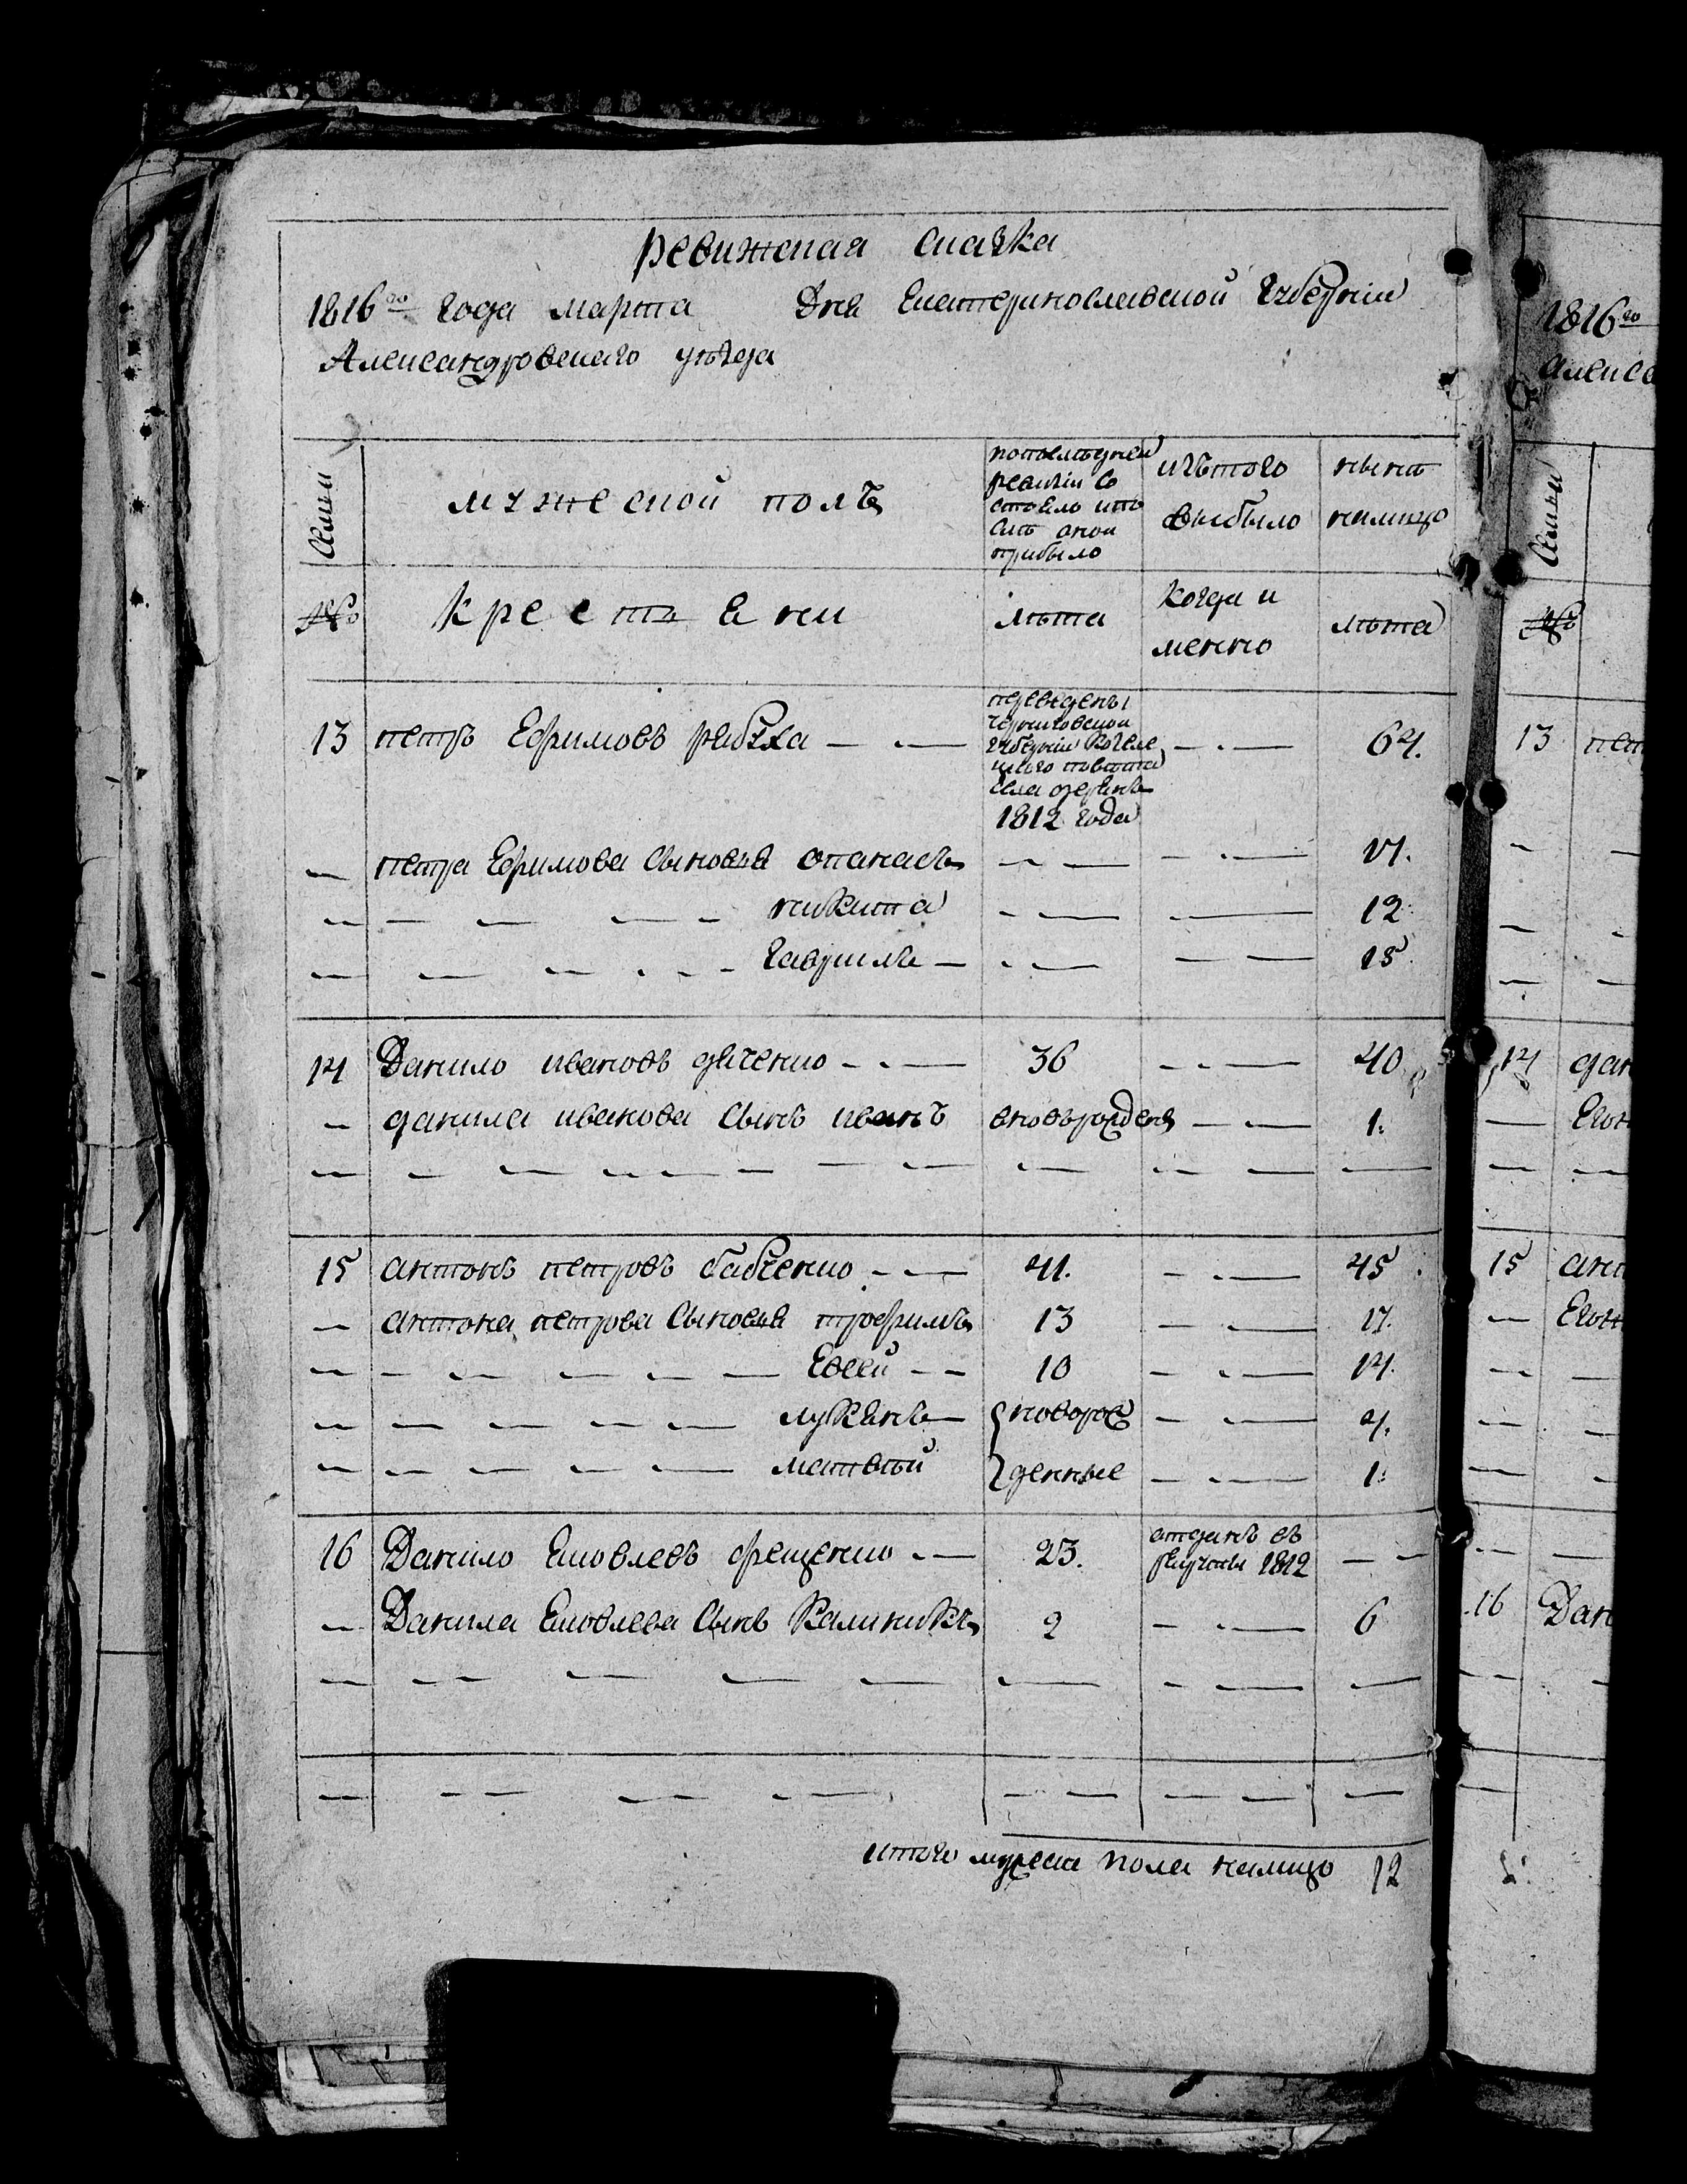 ревижская скаска
1816го года марта Дня Екатеринославской губернiи
Александровскаго уѣзда
Семьи
мужеской полъ
попоследней
ревизiи со
стояло ипо
слѣ оной
прибыло
изътого
выбыло
нынѣ
налицо
№
крестьяне
лѣта
когда и
менно
лѣта
13 петръ Ефимовъ рябуха
переведенъ
черниговской
губернiи Козеле
цкаго повѣта
села
1812 года
64.
петра Ефимова Сыновья опанасъ 17.
никита 12
гаврила 15
14 Данило ивановъ дяченко 36 40
данила иванова Сынъ иванъ вновьрожденъ 1.
15 антонъ петровъ бабченко 41. 45
антона петрова Сыновья трофимъ 13 17.
Евсей 10 14.
лукъянъ новорож 4.
матвѣй денные 1.
16 Данило Яковлевъ фещенко 23. отданъ въ
рекруты 1812
Данила Яковлева Сынъ Калиникъ 2 6
итого мужска пола налицо 12
1816го
Алекса
Семьи
№
13 пет
14 дан
Егож
15 анто
Егож
16 Дан